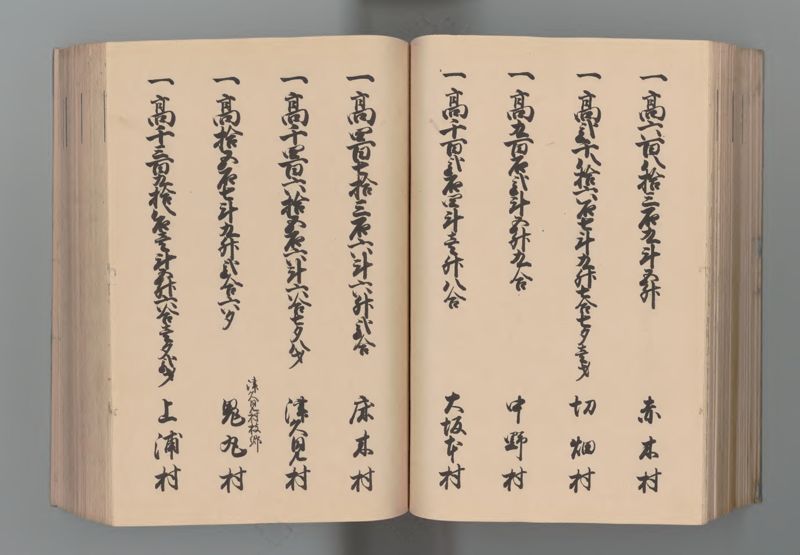 一高六百八拾三石九斗五升 赤木村
一高弐千八拾六石七斗九升七合七夕壱才 切畑村
一高五百石弐斗五升九合 中野村
一高千百弐石四斗壱升八合 大坂本村
一高四百七拾三石六斗六升弐合 床木村
一高千四百六拾五石六斗六合七夕八才 津久見村
津久見村枝郷
一高拾五石七斗九升弐合六夕 鬼丸村
一高千三百五拾八石壱斗五升六合壱夕弐才 上浦村